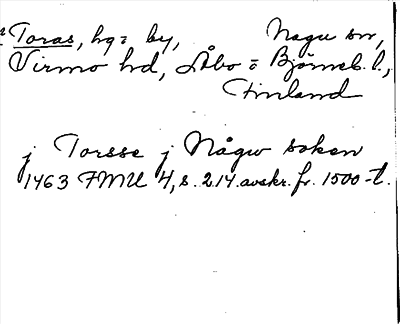 Toras, hg = by, Nagu sn,
Virmo hd, Åbo = Björneb. l.,
Finland
j Torsse j Någw soken
1463 FMU 4, s. 214. avskr. fr. 1500-t.